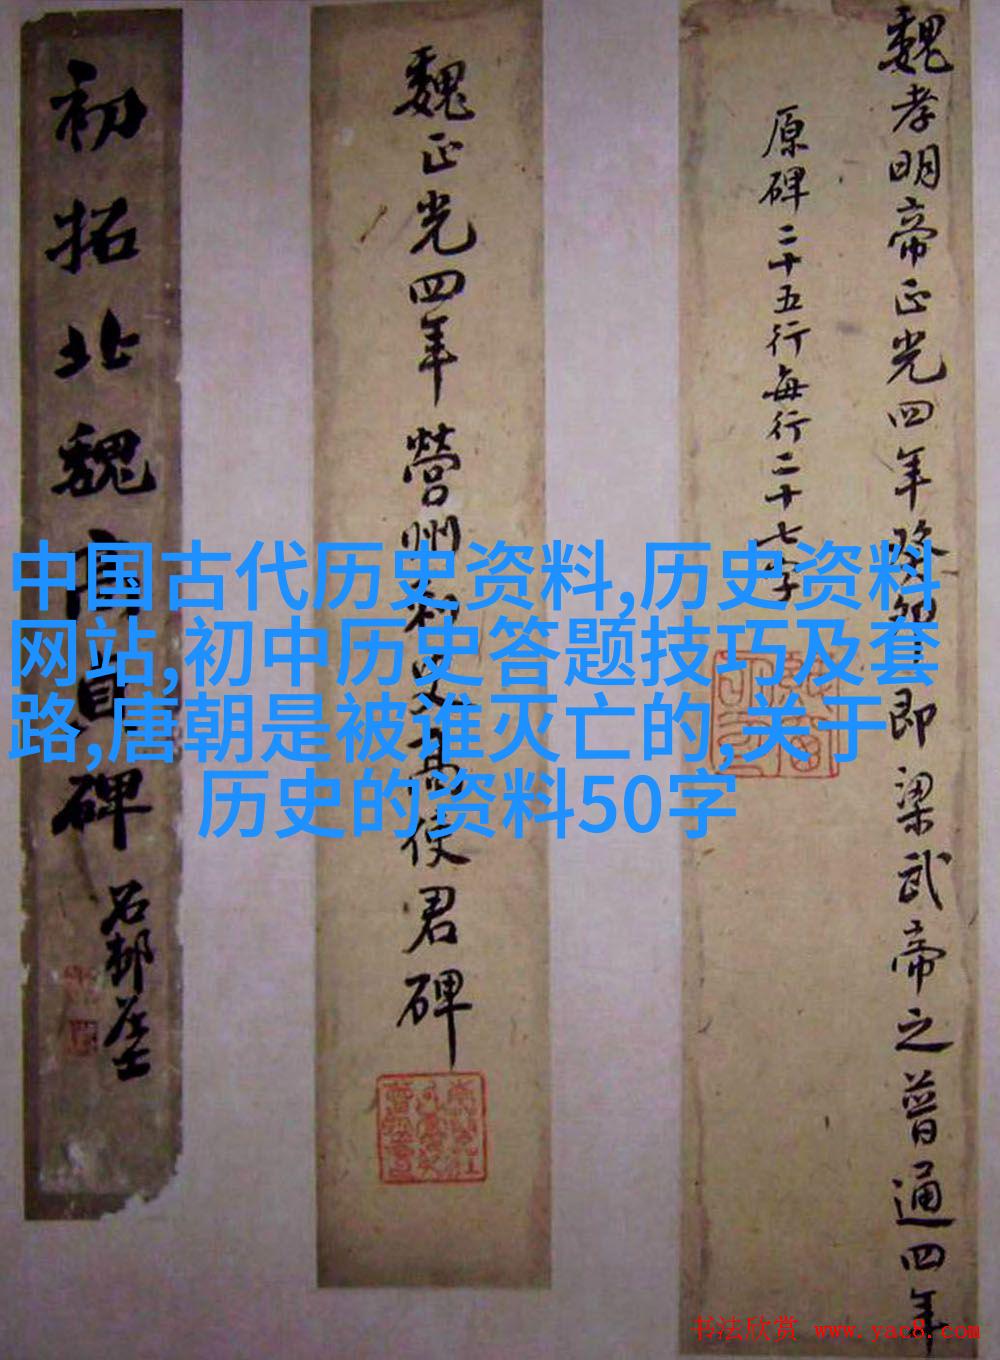 魏孝明帝正光四年癸卯即梁武帝之普通四年
原碑二十五行每行二十七字
魏正光四年營州刺史高使君碑
初拓北魏高貞碑
石邨居士
中国古代历史资料,历史资料
网站,初中历史答题技巧及套
路,唐朝是被谁灭亡的,关于
历史的资料50字
书法欣赏 www.yac8.com